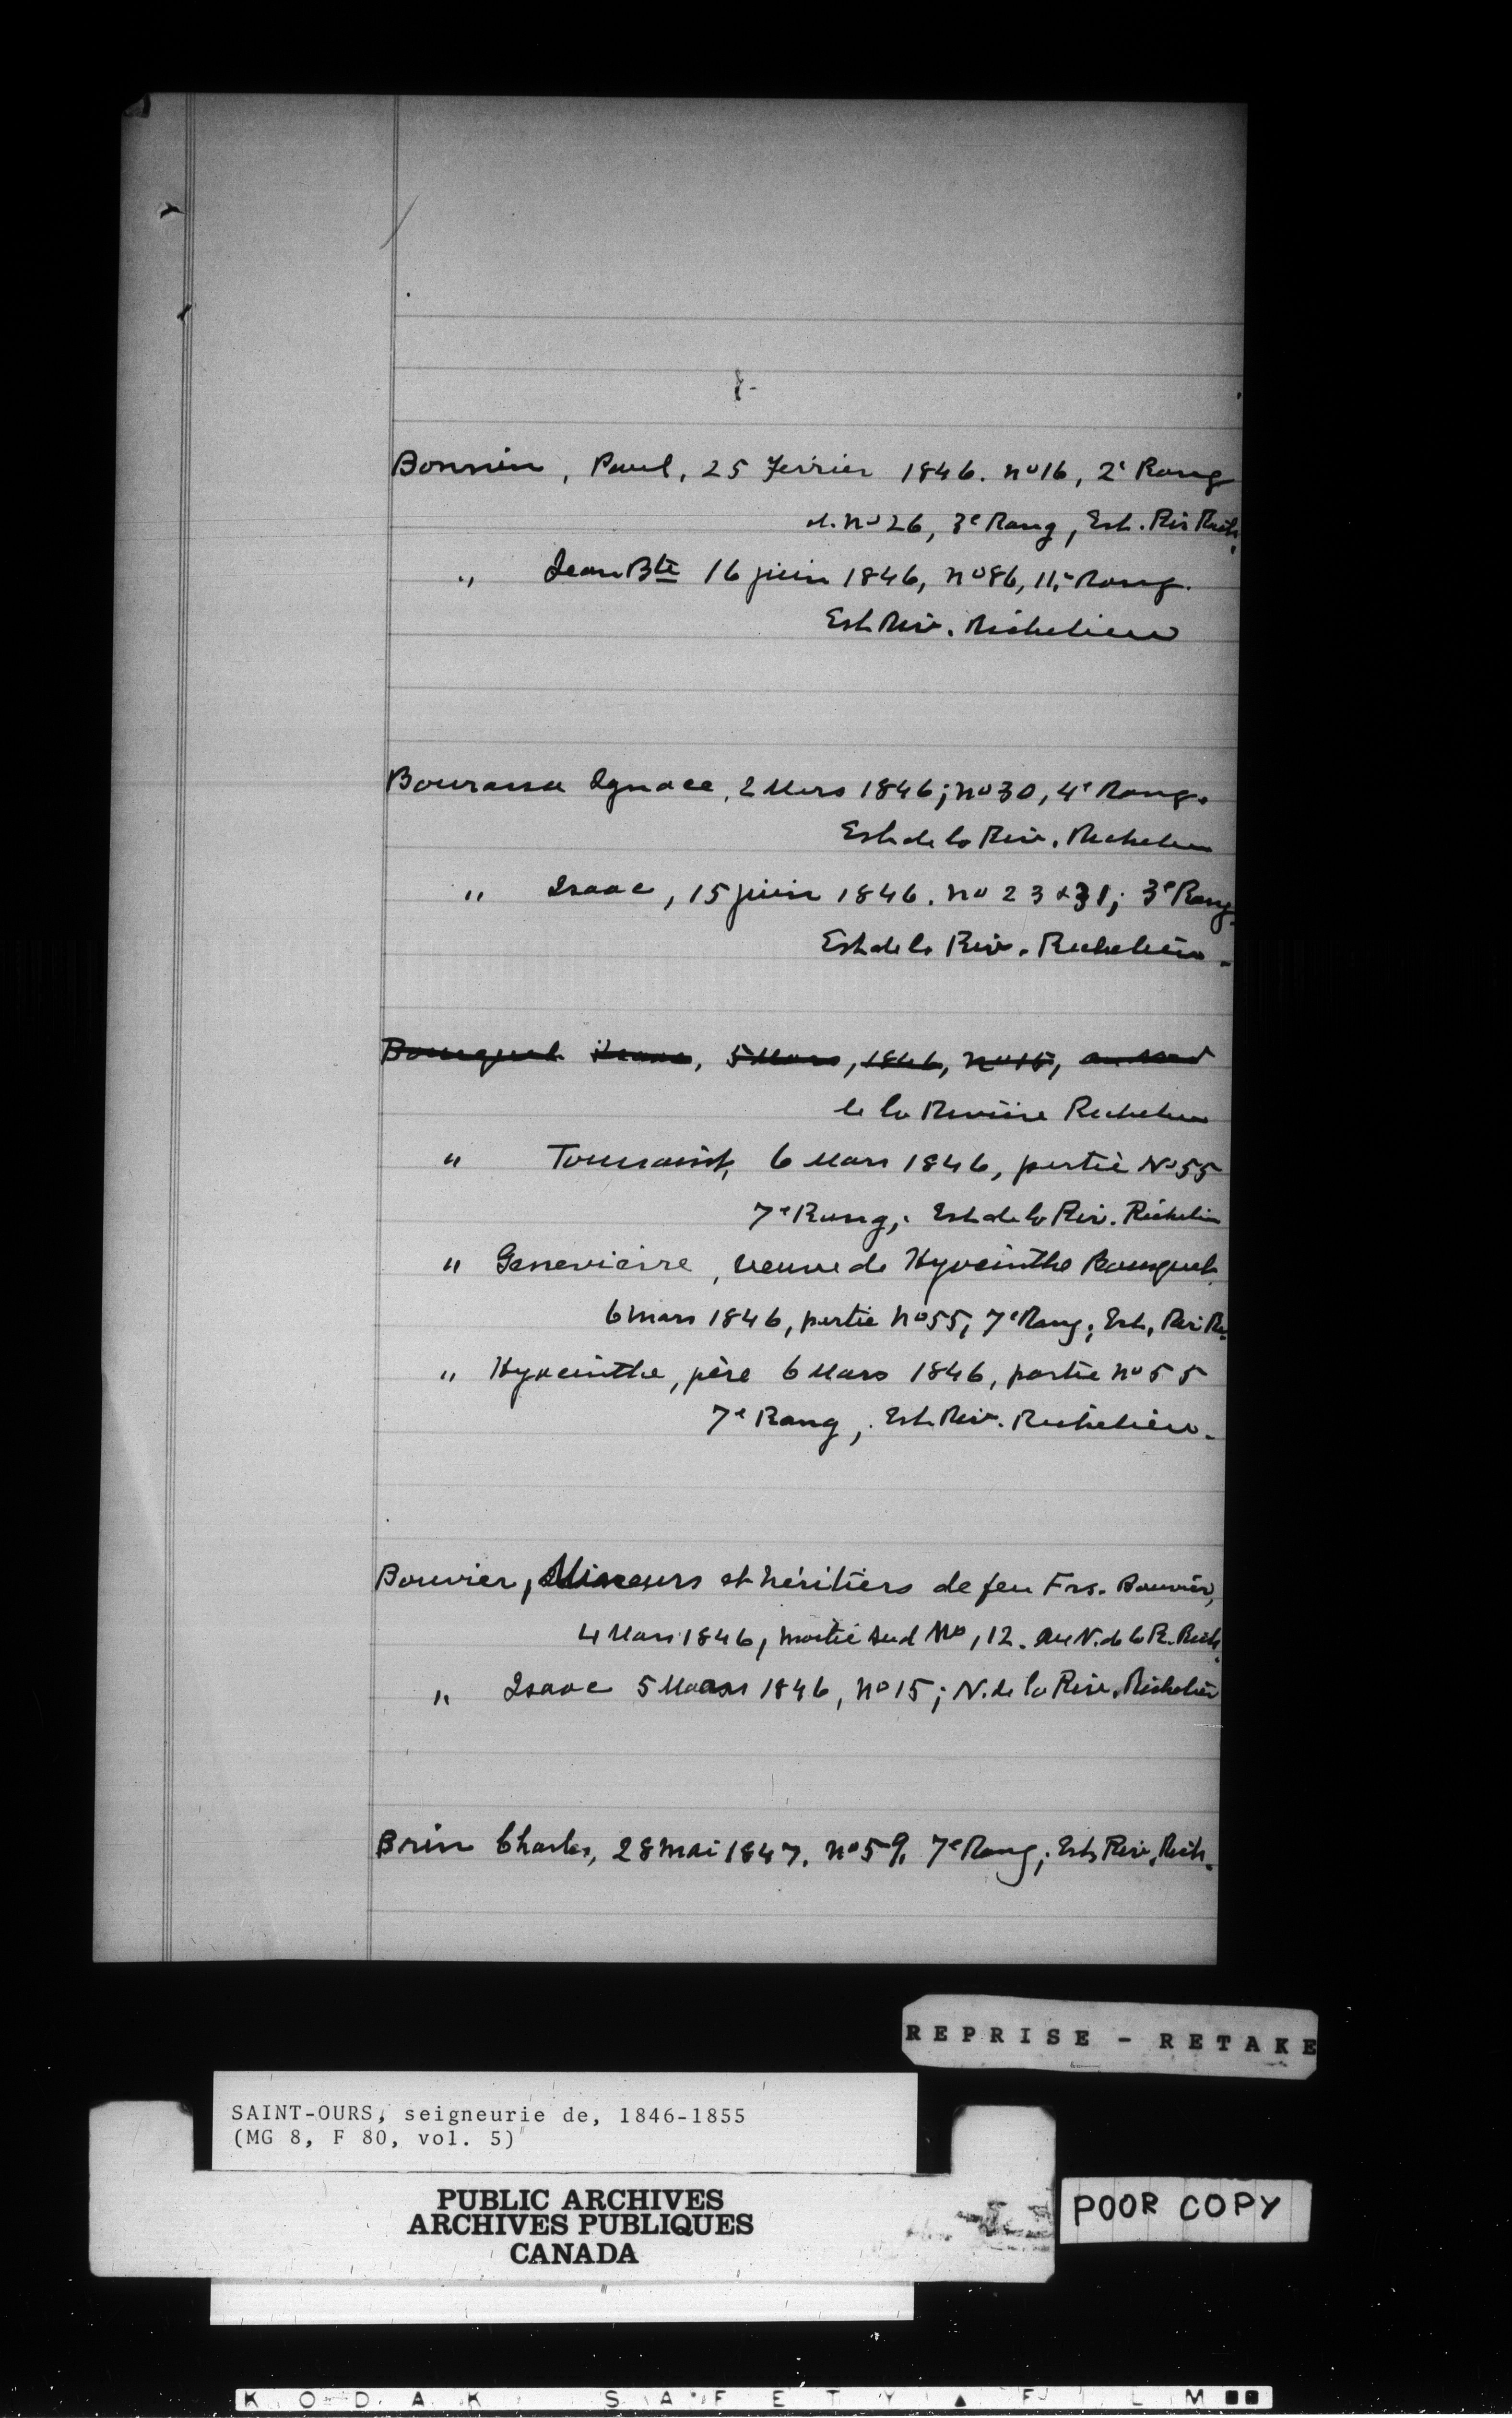 8-
Bonnin, Paul, 25 Février 1846. no 16, 2e Rang
et no 26, 3e Rang, Est. Riv Rich.
" Jean Bte 16 juin 1846, no 86, 11e Rang.
Est Riv. Richelieu
Bourassa Ignace, 2 Mars 1846; no 30, 4e Rang.
Est de la Riv. Richelieu
" Isaac, 15 juin 1846. no 23 & 31; 3e Rang.
Est de la Riv. Richelieu.
Bousquet Isaac, 5 Mars, 1846, no 15, au nord
de la Rivière Richelieu
" Toussaint, 6 Mars 1846, partie No 55
7e Rang; Est de la Riv. Richelieu
" Geneviève, veuve de Hyacinthe Bousquet
6 mars 1846, partie no 55, 7e Rang; Est, Riv Ri.
" Hyacinthe, père 6 Mars 1846, partie no 55
7e Rang, Est Riv. Richelieu.
Bouvier, Mineurs et héritiers de feu Frs. Bouvier,
4 Mars 1846, moitié sud No, 12. au N. de la R. Rich.
" Isaac 5 Mars 1846, no 15; N. de la Riv. Richelieu
Brin Charles, 28 mai 1847. no 59, 7e Rang; Est Riv. Rich.
REPRISE - RETAKE
SAINT-OURS, seigneurie de, 1846-1855
(MG 8, F 80, vol. 5)
PUBLIC ARCHIVES
ARCHIVES PUBLIQUES
CANADA
POOR COPY
KODAK SAFETY ▲ FILM